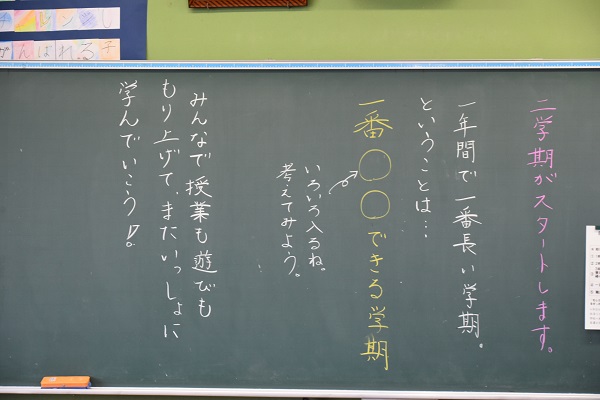 二学期がスタートします。
一年間で一番長い学期。
ということは…
一番〇〇できる学期
いろいろ入るね。
考えてみよう。
みんなで授業も遊びも
もり上げて、またいっしょに
学んでいこう!!
がんばれる子